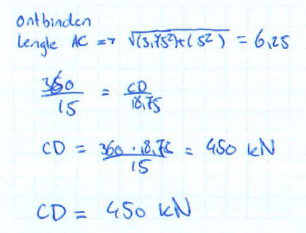 ontbinden
Lengte AC => √(3,75²)+(5²) = 6,25
360/15 = CD/18,75
CD = 360 · 18,75/15 = 450 kN
CD = 450 kN